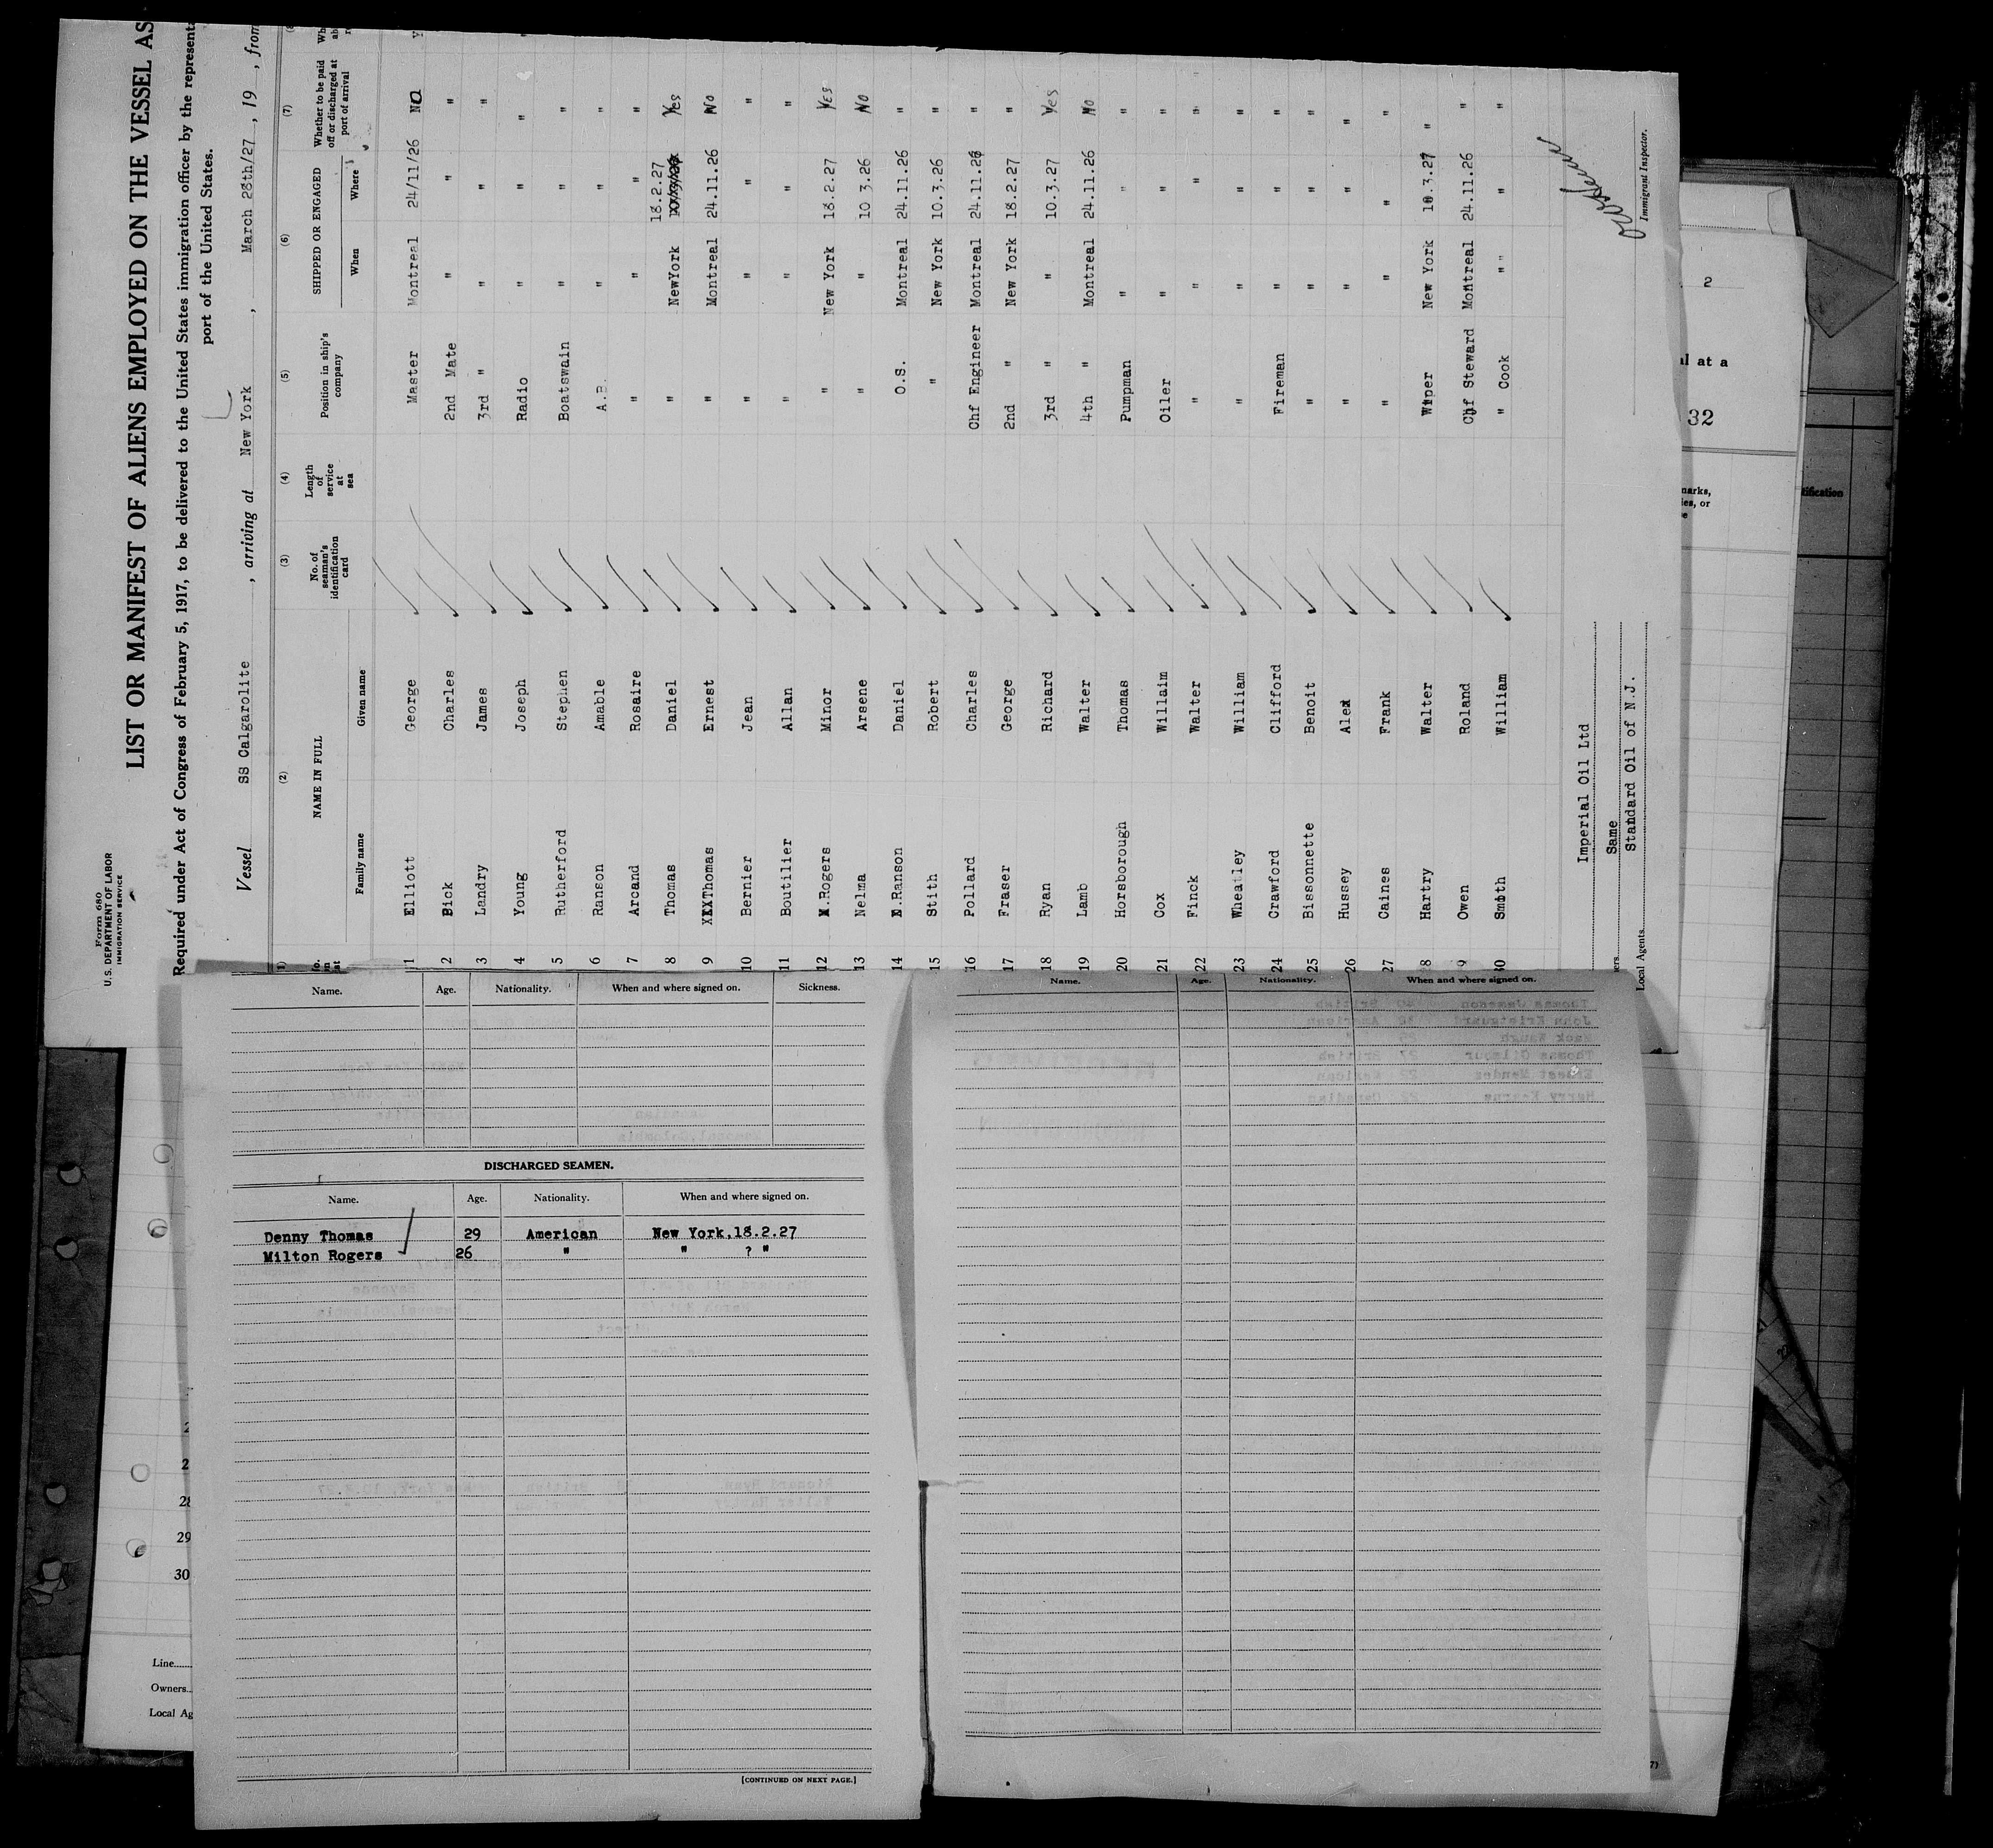 Form 680
U.S. DEPARTMENT OF LABOR
IMMIGRATION SERVICE
LIST OR MANIFEST OF ALIENS EMPLOYED ON THE VESSEL AS
Required under Act of Congress of February 5, 1917, to be delivered to the United States immigration officer by the
port of the United States.
Vessel SS Calgarolite, arriving at New York, March 28th/27, 19 , from
(2) (3) (4) (5) (6) (7)
NAME IN FULL No. of seaman's identification card Length of service at sea Position in ship's company SHIPPED OR ENGAGED Whether to be paid off or discharged at port of arrival
Family name Given name When Where
1 Elliott George Master Montreal 24/11/26 NO
2 Bick Charles 2nd Mate " " "
3 Landry James 3rd " " " "
4 Young Joseph Radio " " "
5 Rutherford Stephen Boatswain " " "
6 Ranson Amable A.B. " " "
7 Arcand Rosaire " " " "
8 Thomas Daniel " NewYork 18.2.27 Yes
9 XXXThomas Ernest " Montreal 24.11.26 NO
10 Bernier Jean " " " "
11 Boutilier Allan " " " "
12 M.Rogers Minor " New York 18.2.27 Yes
13 Nelma Arsene " " 10 3.26 NO
14 E.Ranson Daniel O.S. Montreal 24.11.26 "
15 Stith Robert " New York 10.3.26 "
16 Pollard Charles Chf Engineer Montreal 24.11.26 "
17 Fraser George 2nd " New York 18.2.27 "
18 Ryan Richard 3rd " " 10.3.27 Yes
19 Lamb Walter 4th " Montreal 24.11.26 NO
20 Horsborough Thomas Pumpman " " "
21 Cox Willaim Oiler " " "
22 Finck Walter " " " "
23 Wheatley William " " " "
24 Crawford Clifford Fireman " " "
25 Bissonnette Benoit " " " "
26 Hussey Alex " " " "
27 Caines Frank " " " "
28 Hartry Walter Wiper New York 10.3.27 "
9 Owen Roland Chf Steward Montreal 24.11.26 "
30 Smith William " Cook " " " "
Imperial Oil Ltd
Same
Local Agents Standard Oil of N.J.
Immigrant Inspector.
Name. Age. Nationality. When and where signed on. Sickness.
DISCHARGED SEAMEN.
Name. Age. Nationality. When and where signed on.
Denny Thomas 29 American New York,18.2.27
Milton Rogers 26 " " ? "
[CONTINUED ON NEXT PAGE.]
Name. Age. Nationality. When and where signed on.
2
al at a
32
29
30
Line
Owners
Local Ag